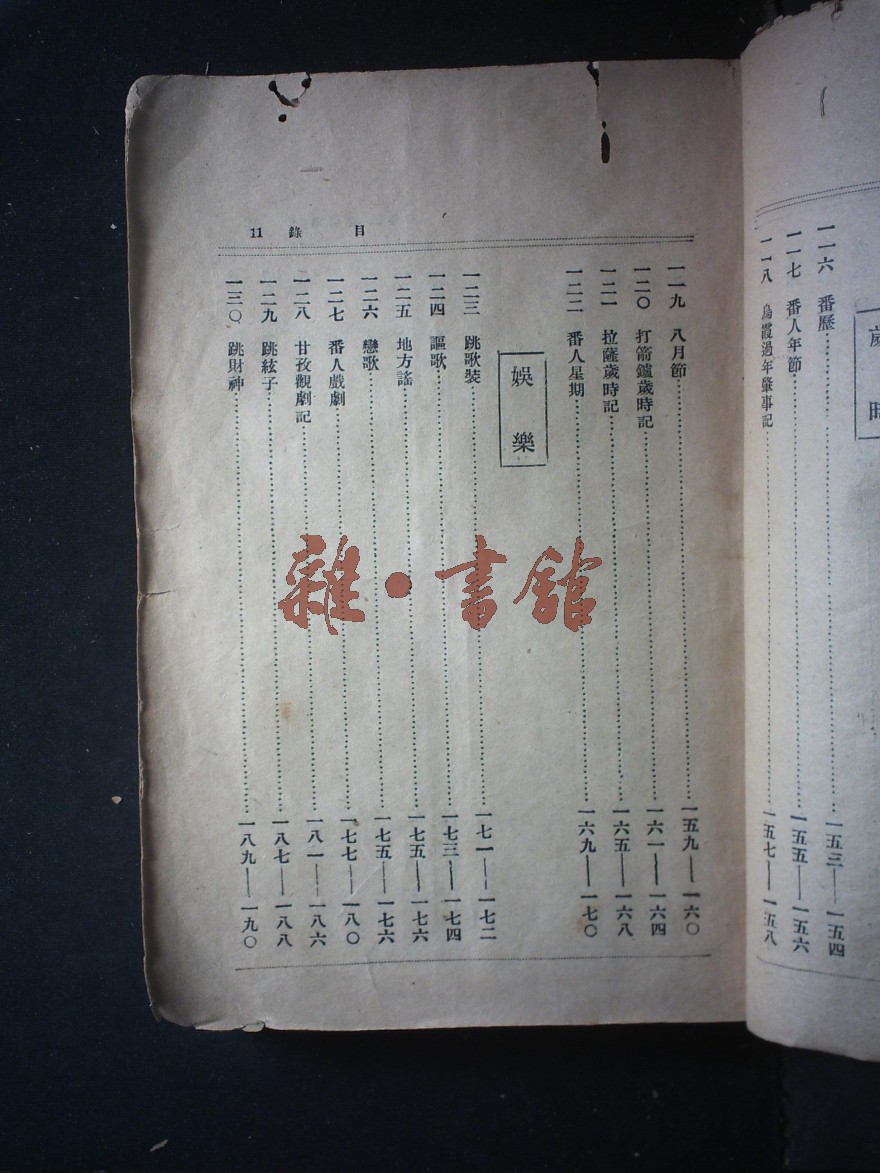 歲時
一一六 番歷……一五三——一五四
一一七 番人年節……一五五——一五六
一一八 烏霞過年肇事記……一五七——一五八
目錄 11
一一九 八月節……一五九——一六〇
一二〇 打箭鑪歲時記……一六一——一六四
一二一 拉薩歲時記……一六五——一六八
一二二 番人星期……一六九——一七〇
娛樂
一二三 跳歌裝……一七一——一七二
一二四 謳歌……一七三——一七四
一二五 地方謠……一七五——一七六
一二六 戀歌……一七五——一七六
一二七 番人戲劇……一七七——一八〇
一二八 甘孜觀劇記……一八一——一八六
一二九 跳絃子……一八七——一八八
一三〇 跳財神……一八九——一九〇
雜·書館